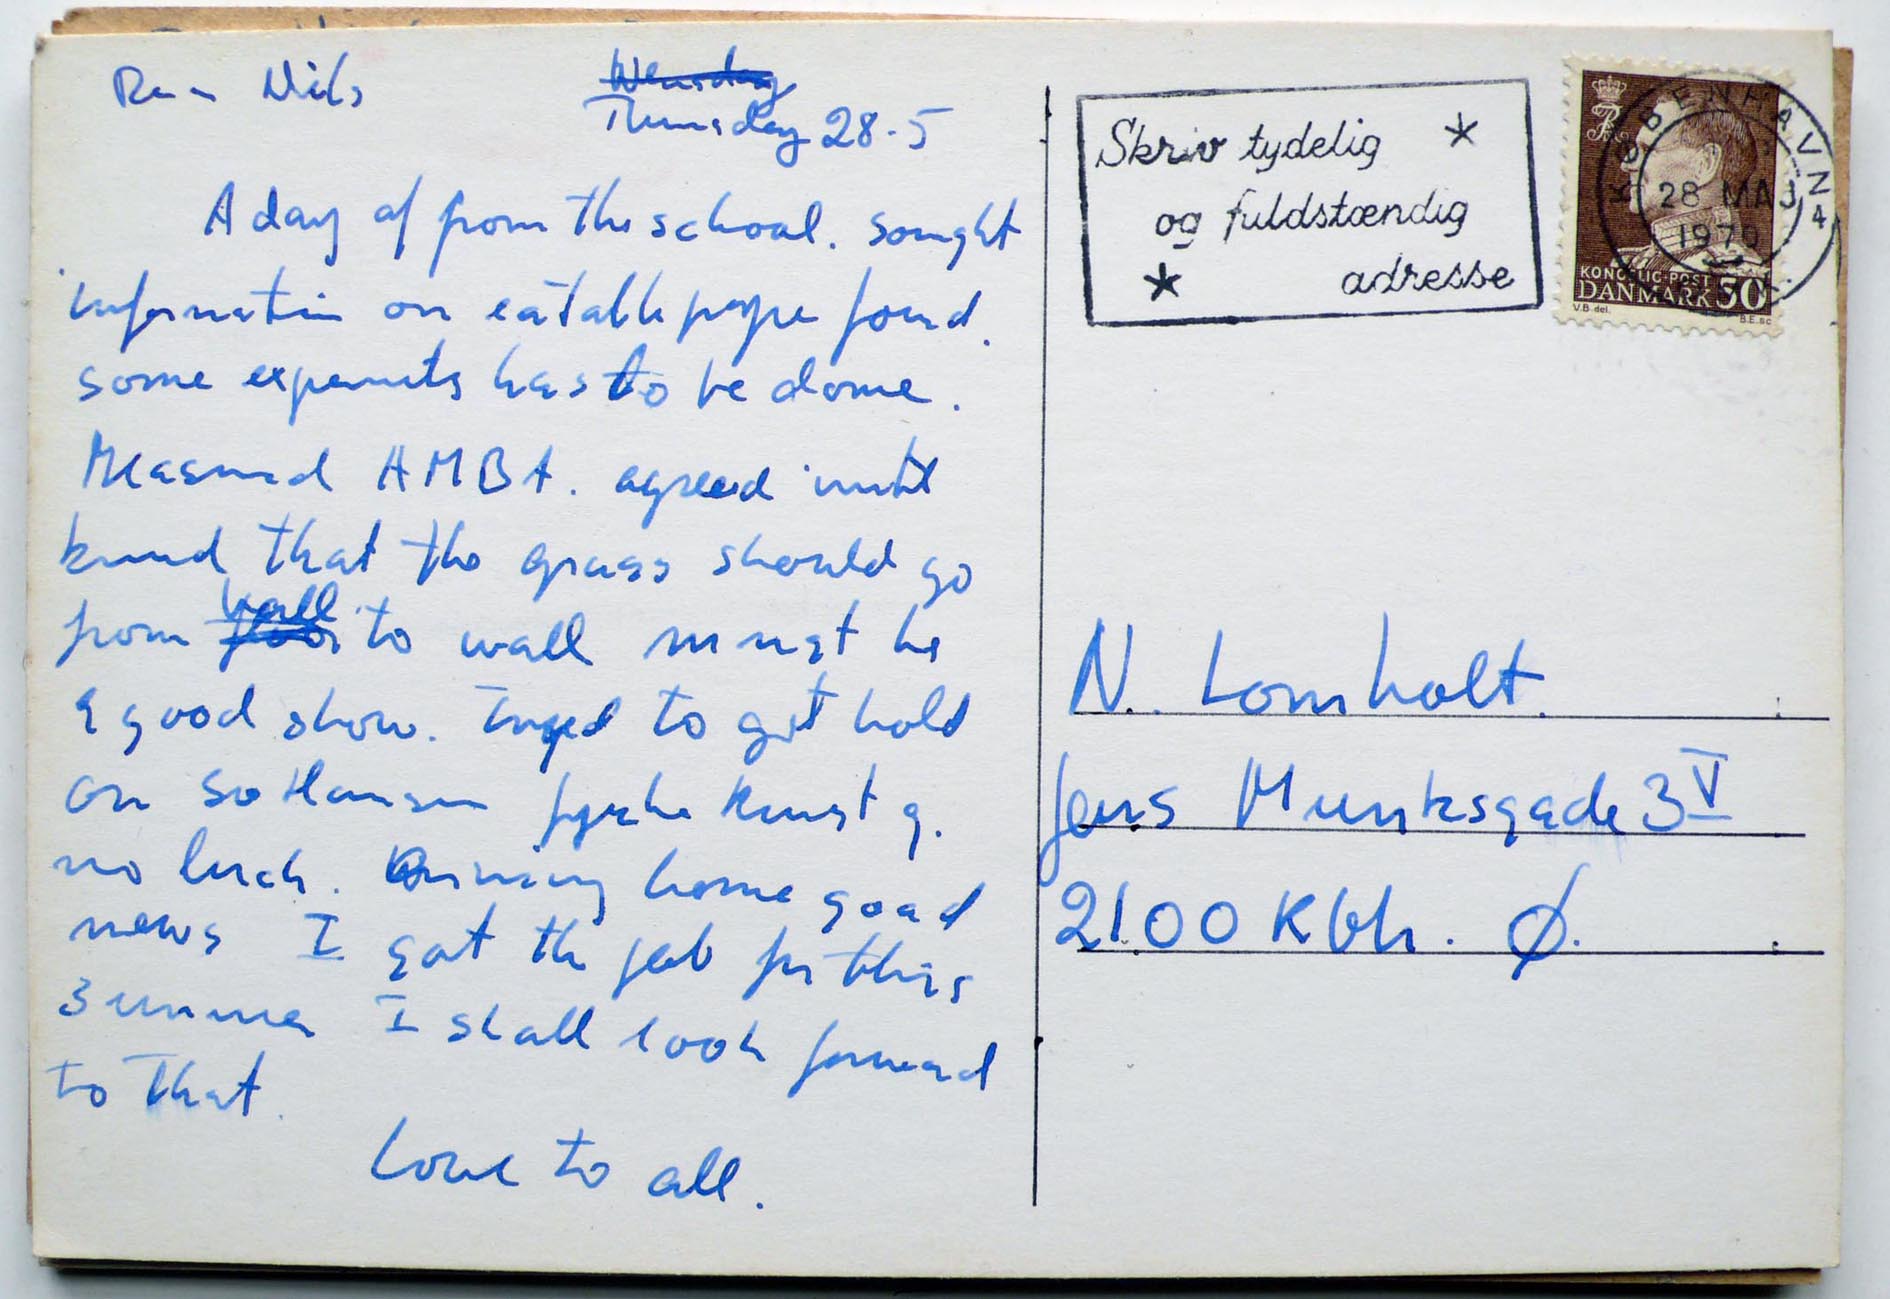 Dear Nils
Wensday
Thursday 28-5
A day of from the school. sought
information on eatable pope foud.
some experients has to be dome.
Measured AMBA. agreed with
knud that the grass should go
from wall to wall must be
a good show. Tryed to get hold
on so Hansen fyrke Kunst g.
no luck. Arriving home good
news I got the job for this
summer I shall look forward
to that.
Love to all.
Skriv tydelig
og fuldstændig
adresse
KØBENHAVN
28 MAJ
1970
4
KONGELIG·POST
DANMARK 50
V.B. del.
B.E. sc
N. Lomholt.
Jens Munksgade 3 V
2100 Kbh. Ø.